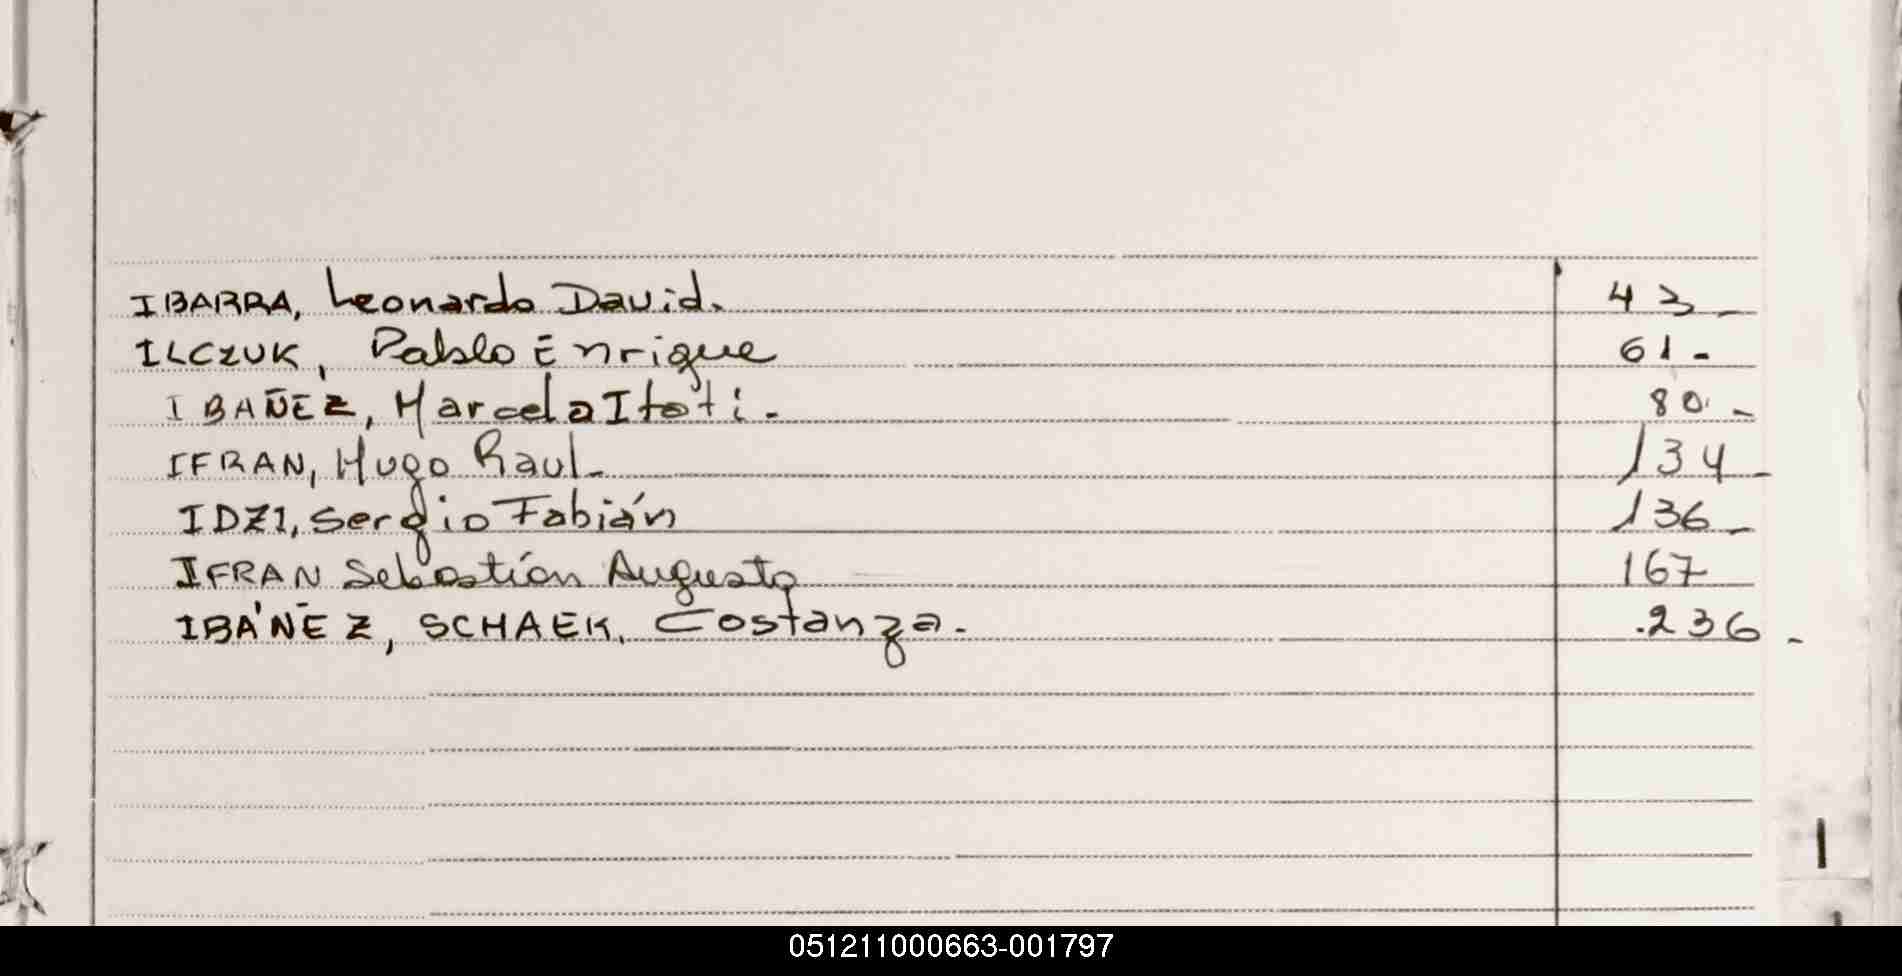 IBARRA, Leonardo David. 43-
ILCZUK, Pablo Enrique 61-
IBAÑEZ, Marcela Itatí. 80-
IFRAN, Hugo Raul- 134-
IDZI, Sergio Fabián 136-
IFRAN Sebastián Augusto 167
IBÁÑEZ, SCHAEK, Costanza. 236-
I
051211000663-001797